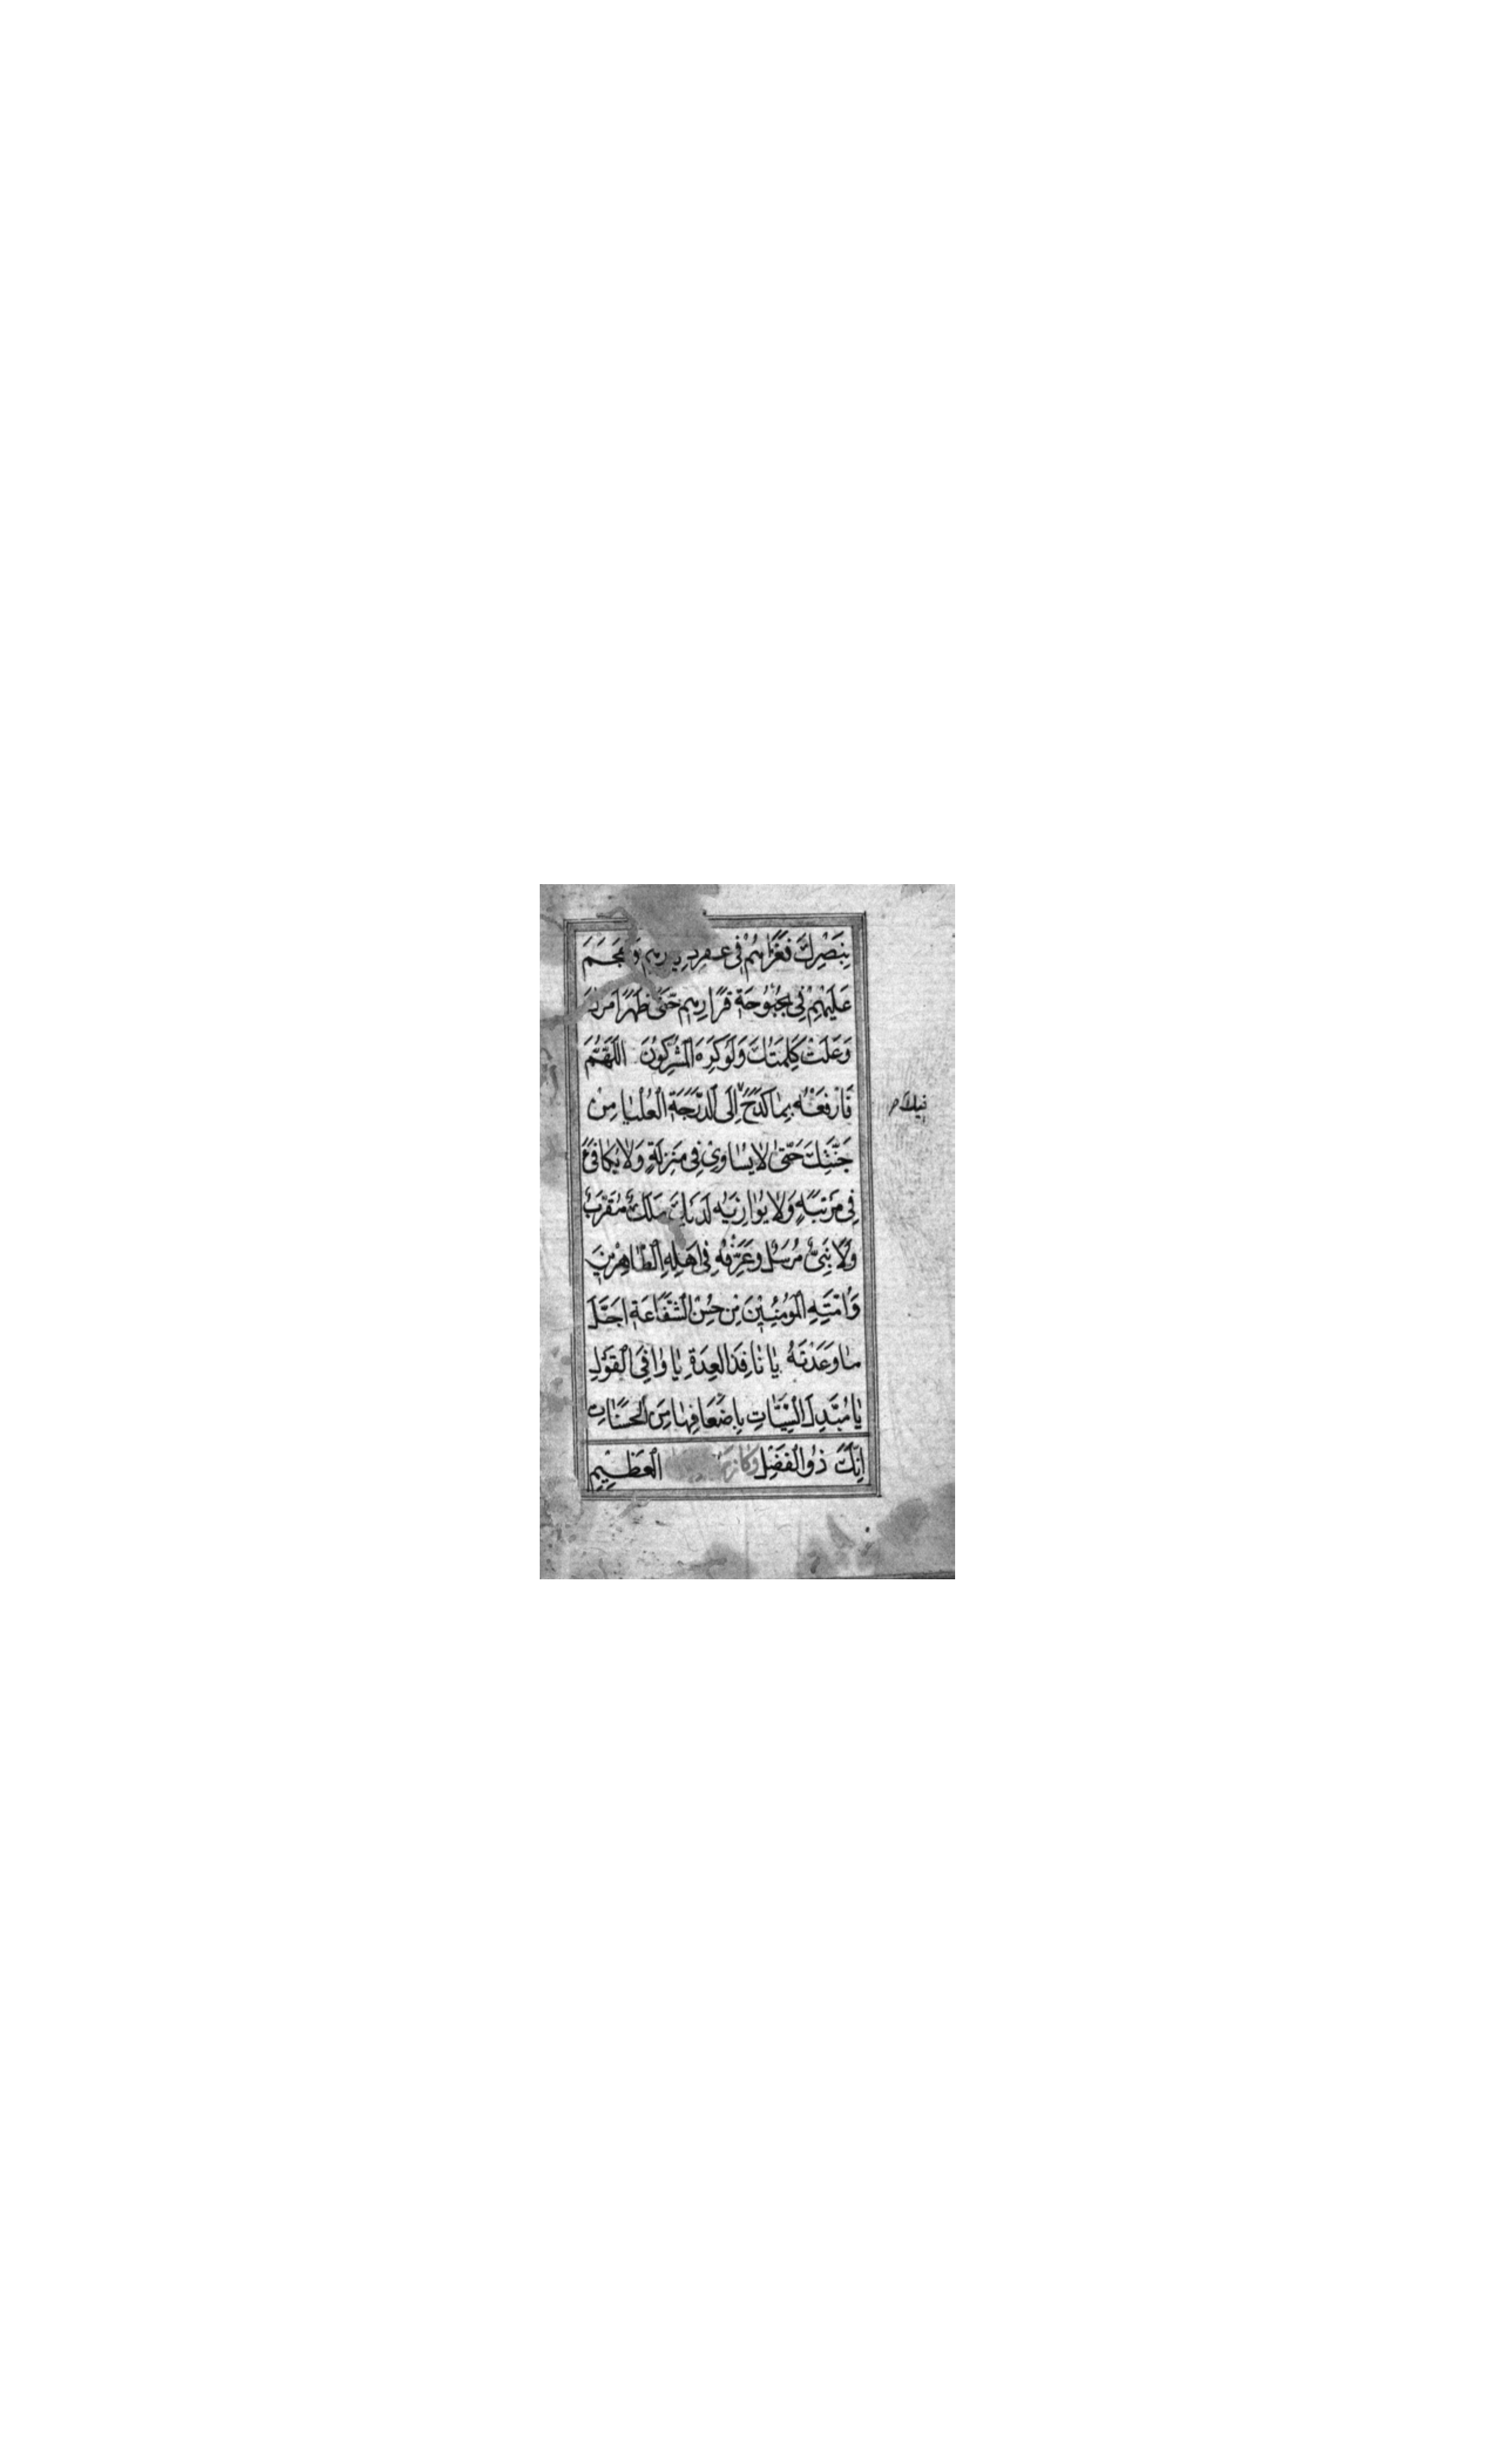 بِنَصْرِكَ فَغَزَاهُمْ فِي عُقْرِ دِيَارِهِمْ وَهَجَمَ
عَلَيْهِمْ فِي بُحْبُوحَةِ قَرَارِهِمْ حَتّٰى ظَهَرَ اَمْرُكَ
وَعَلَتْ كَلِمَتُكَ وَلَوْ كَرِهَ الْمُشْرِكُونَ اَللّٰهُمَّ
فَارْفَعْهُ بِمَا كَدَحَ اِلَى الدَّرَجَةِ الْعُلْيَا مِنْ
جَنَّتِكَ حَتّٰى لَا يُسَاوٰى فِي مَنْزِلَةٍ وَلَا يُكَافَئَ
فِي مَرْتَبَةٍ وَلَا يُوَازِيَهُ لَدَيْكَ مَلَكٌ مُقَرَّبٌ
وَلَا نَبِيٌّ مُرْسَلٌ وَعَرِّفْهُ فِي اَهْلِهِ الطَّاهِرِينَ
وَاُمَّتِهِ الْمُؤْمِنِينَ مِنْ حُسْنِ الشَّفَاعَةِ اَجَلَّ
مَا وَعَدْتَهُ يَا نَافِذَ الْعِدَةِ يَا وَافِيَ الْقَوْلِ
يَا مُبَدِّلَ السَّيِّئَاتِ بِاَضْعَافِهَا مِنَ الْحَسَنَاتِ
اِنَّكَ ذُو الْفَضْلِ الْعَظِيمِ